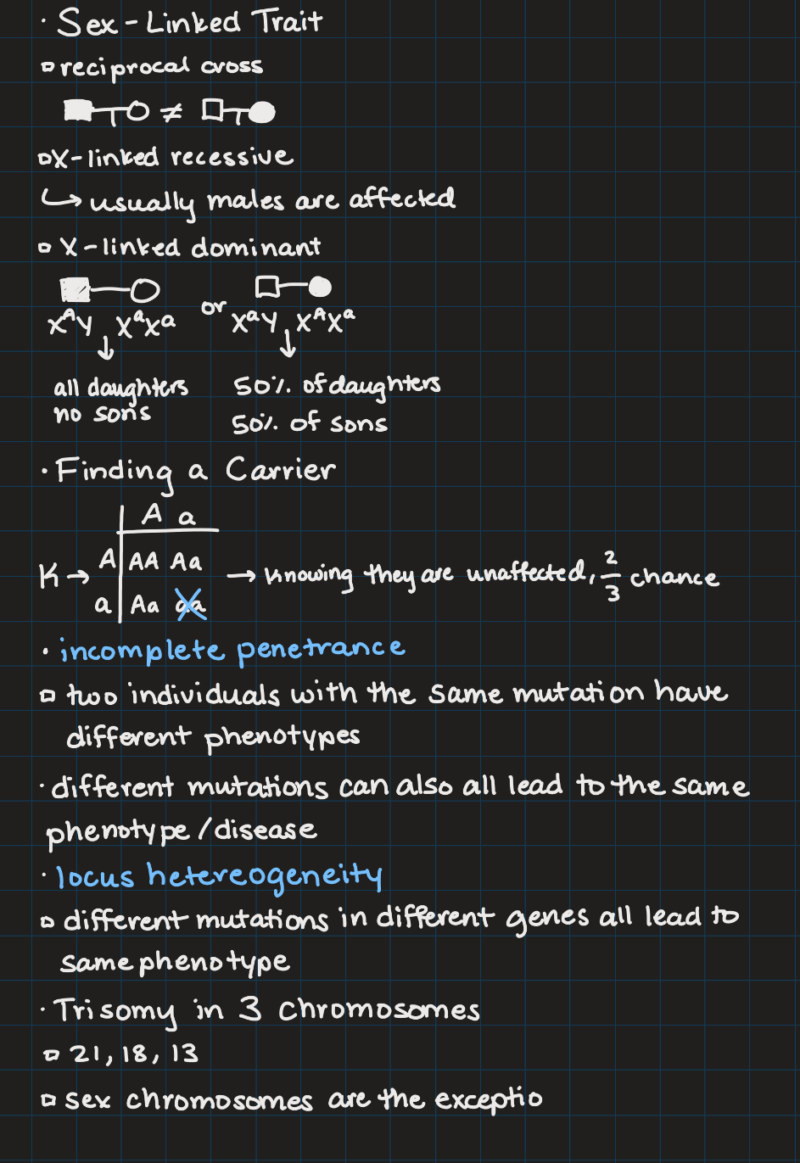 · Sex-Linked Trait
▫ reciprocal cross
≠
▫ X-linked recessive
↳ usually males are affected
▫ X-linked dominant
X^A Y X^a X^a or X^a Y X^A X^a
↓ ↓
all daughters 50% of daughters
no sons 50% of sons
· Finding a Carrier
A a
K → A AA Aa → knowing they are unaffected, 2/3 chance
a Aa aa
· incomplete penetrance
▫ two individuals with the same mutation have
different phenotypes
· different mutations can also all lead to the same
phenotype/disease
· locus hetereogeneity
▫ different mutations in different genes all lead to
same phenotype
· Trisomy in 3 chromosomes
▫ 21, 18, 13
▫ sex chromosomes are the exceptio